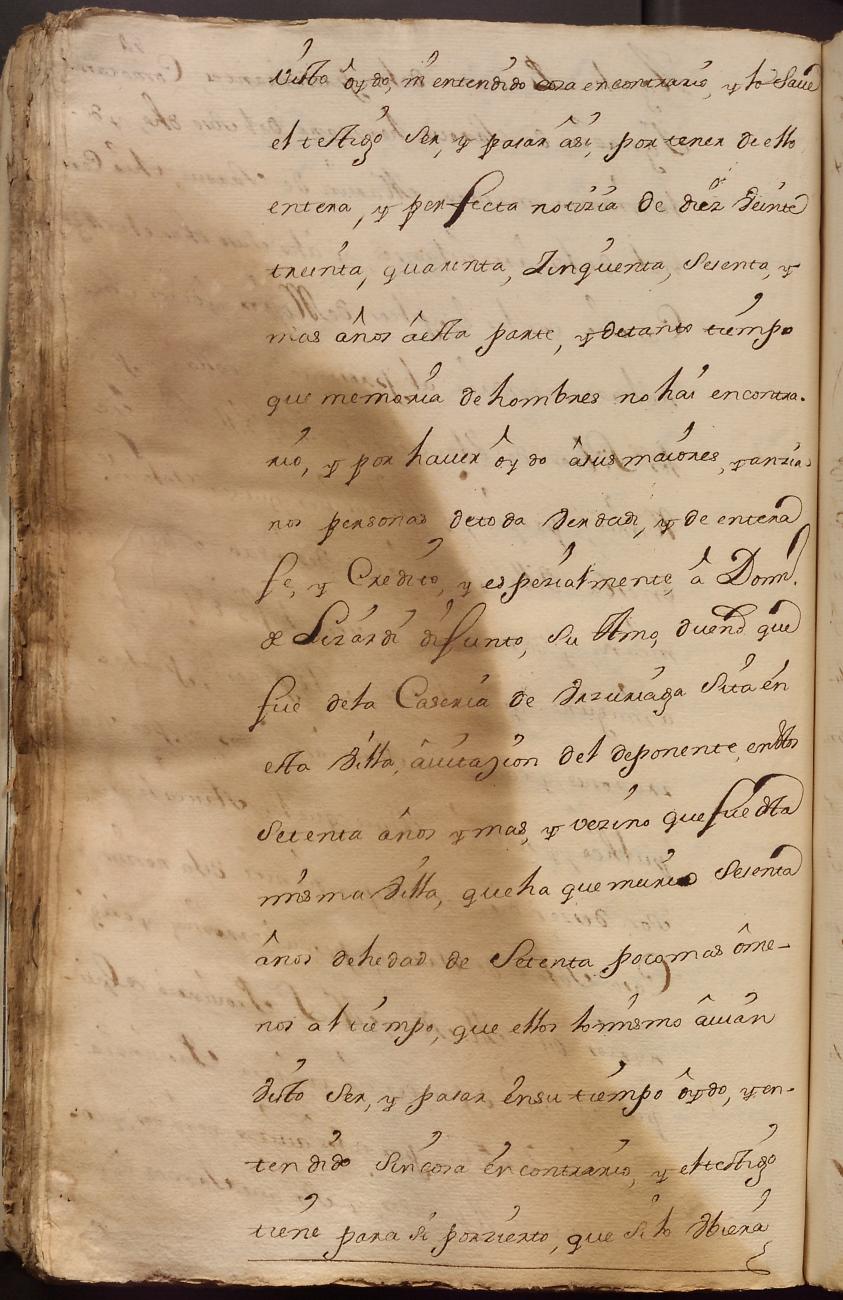 Vista oydo, ni entendido cosa encontrario, y lo Save
el testigo Ser, y pasar asi, por tener de ello
entera, y perfecta notizia de diez Veinte
treinta, quarenta, Zinquenta, Sesenta, y
mas años aesta parte, y detanto tiempo
que memoria de hombres no hai encontra-
rio, y por haver oydo asus maiores, y anzia
nos personas detoda Verdad, y de entera
fe, y Credito, y espezialmente, a Dom.
de Lizardi difunto, Su Amo, dueño que
fue dela Caseria de Vrzuriaga Sita en
esta Villa, avitazion del deponente, en
Setenta años y mas, y vezino que fue dla
misma Villa, que ha que murio Sesenta
años dehedad de Setenta poco mas ome-
nos al tiempo, que ellos lo mismo avian
Visto Ser, y pasar ensu tiempo oydo, y en-
tendido Sin cosa en contrario, y el testigo
tiene para si porzierto, que Si lo Vbiera